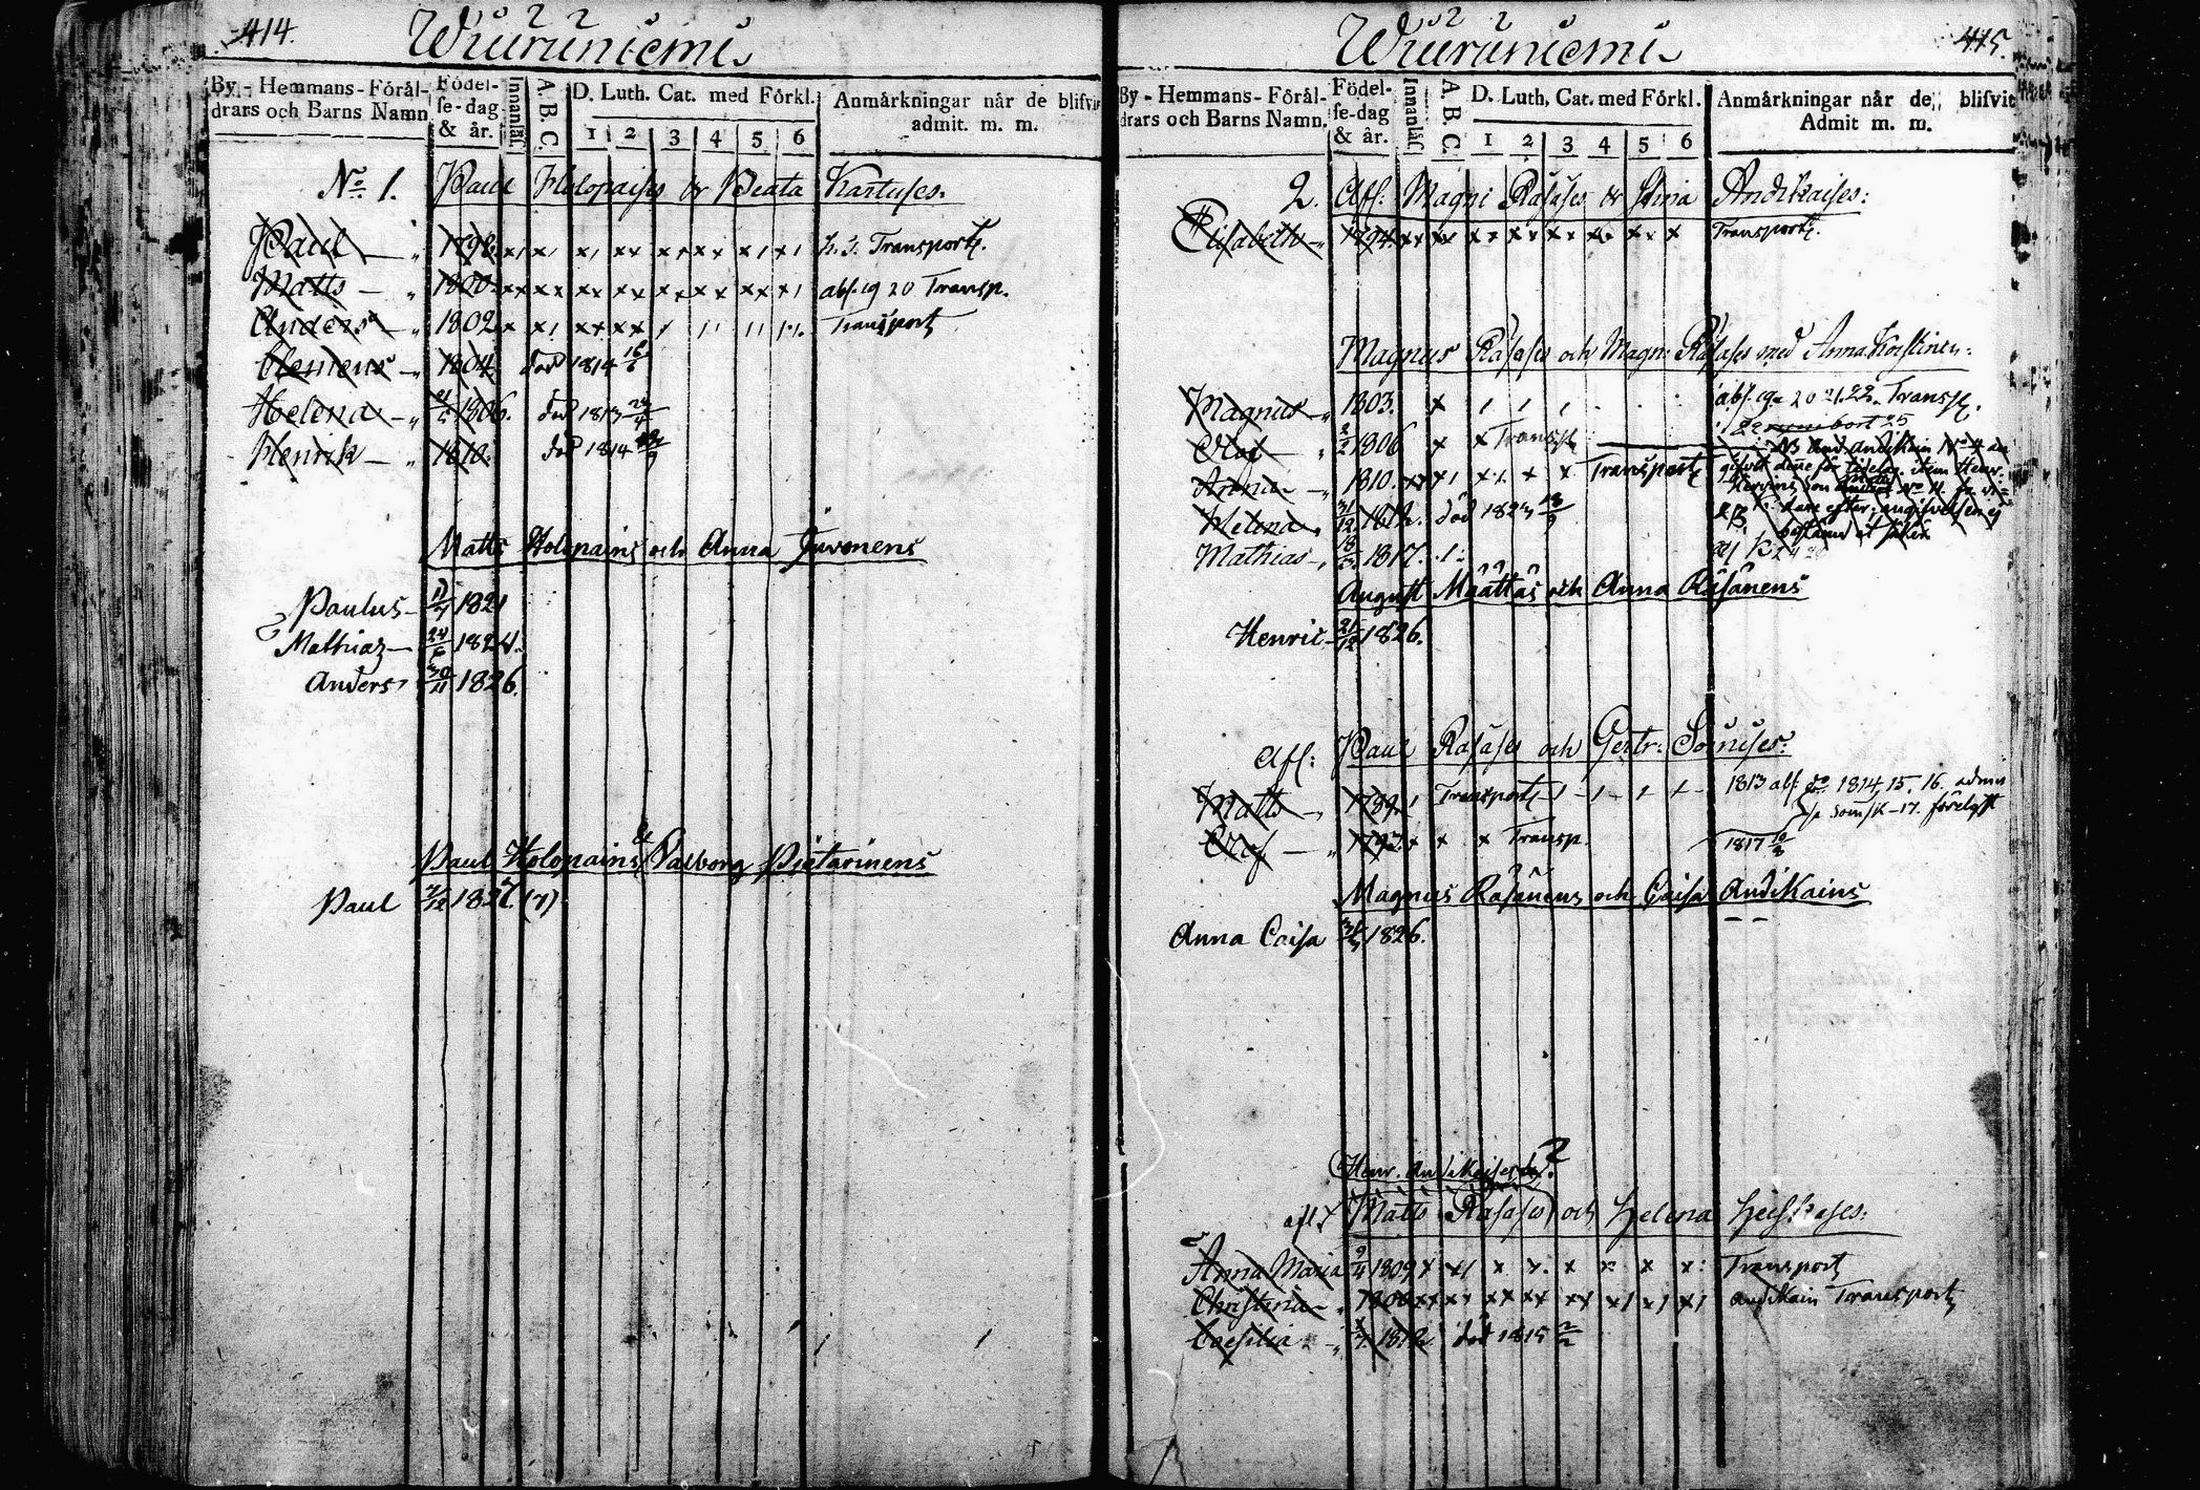 414.
Wuuruniemi
By - Hemmans - Föräl-
drars och Barns Namn.
Födel-
se-dag
& år.
Innanläs.
A. B. C.
D. Luth. Cat. med Förkl.
1 2 3 4 5 6
Anmärkningar när de blifvit
admit. m. m.
No 1. Paul Holopaises & Beata Kartuses.
Paul 1798. Transport.
Matts 1800. abs. 19 20 Transp.
Anders 1802 Transport
Clemens 1804 död 1814
Helena 1806. död 1813
Henrik 1810. död 1814
Matts Holopains och Anna Juvonens
Paulus 11/7 1821
Mathias 1824.
Anders 30/11 1826.
Paul Holopains & Valborg Pietarinens
Paul 7/12 1827. (7)
415.
Wuuruniemi
By - Hemmans - Föräl-
drars och Barns Namn.
Födel-
se-dag
& år.
Innanläs.
A. B. C.
D. Luth. Cat. med Förkl.
1 2 3 4 5 6
Anmärkningar när de blifvit
Admit m. m.
2. Afl: Magni Räsäses & Stina Andikaises:
Elisabeth 1794. Transport.
Magnus Räsäses och Magn: Räsäses med Anna Korstinen:
Magnus 1803. abs. 19 20 21. 22. Transp.
Olof 1806 Transp.
Anna 1810. Transport
Helena 31/12 1812. död 1823
Mathias 1817.
August Määttäs och Anna Räsänens
Henric 21/12 1826.
Afl: Paul Räsäses och Gertr: Soinises:
Matts 1789. Transport 1813 abs. do 1814, 15. 16. admis
Olof 1792. Transp. 1817
Magnus Räsänens och Caisa Andikains
Anna Caisa 1826.
Matts Räsäses och Helena Heiskases:
Anna Maria 9/4 1809 Transport
Christina 1806 Andikain Transport
Coesilia 1812. död 1815 2/2